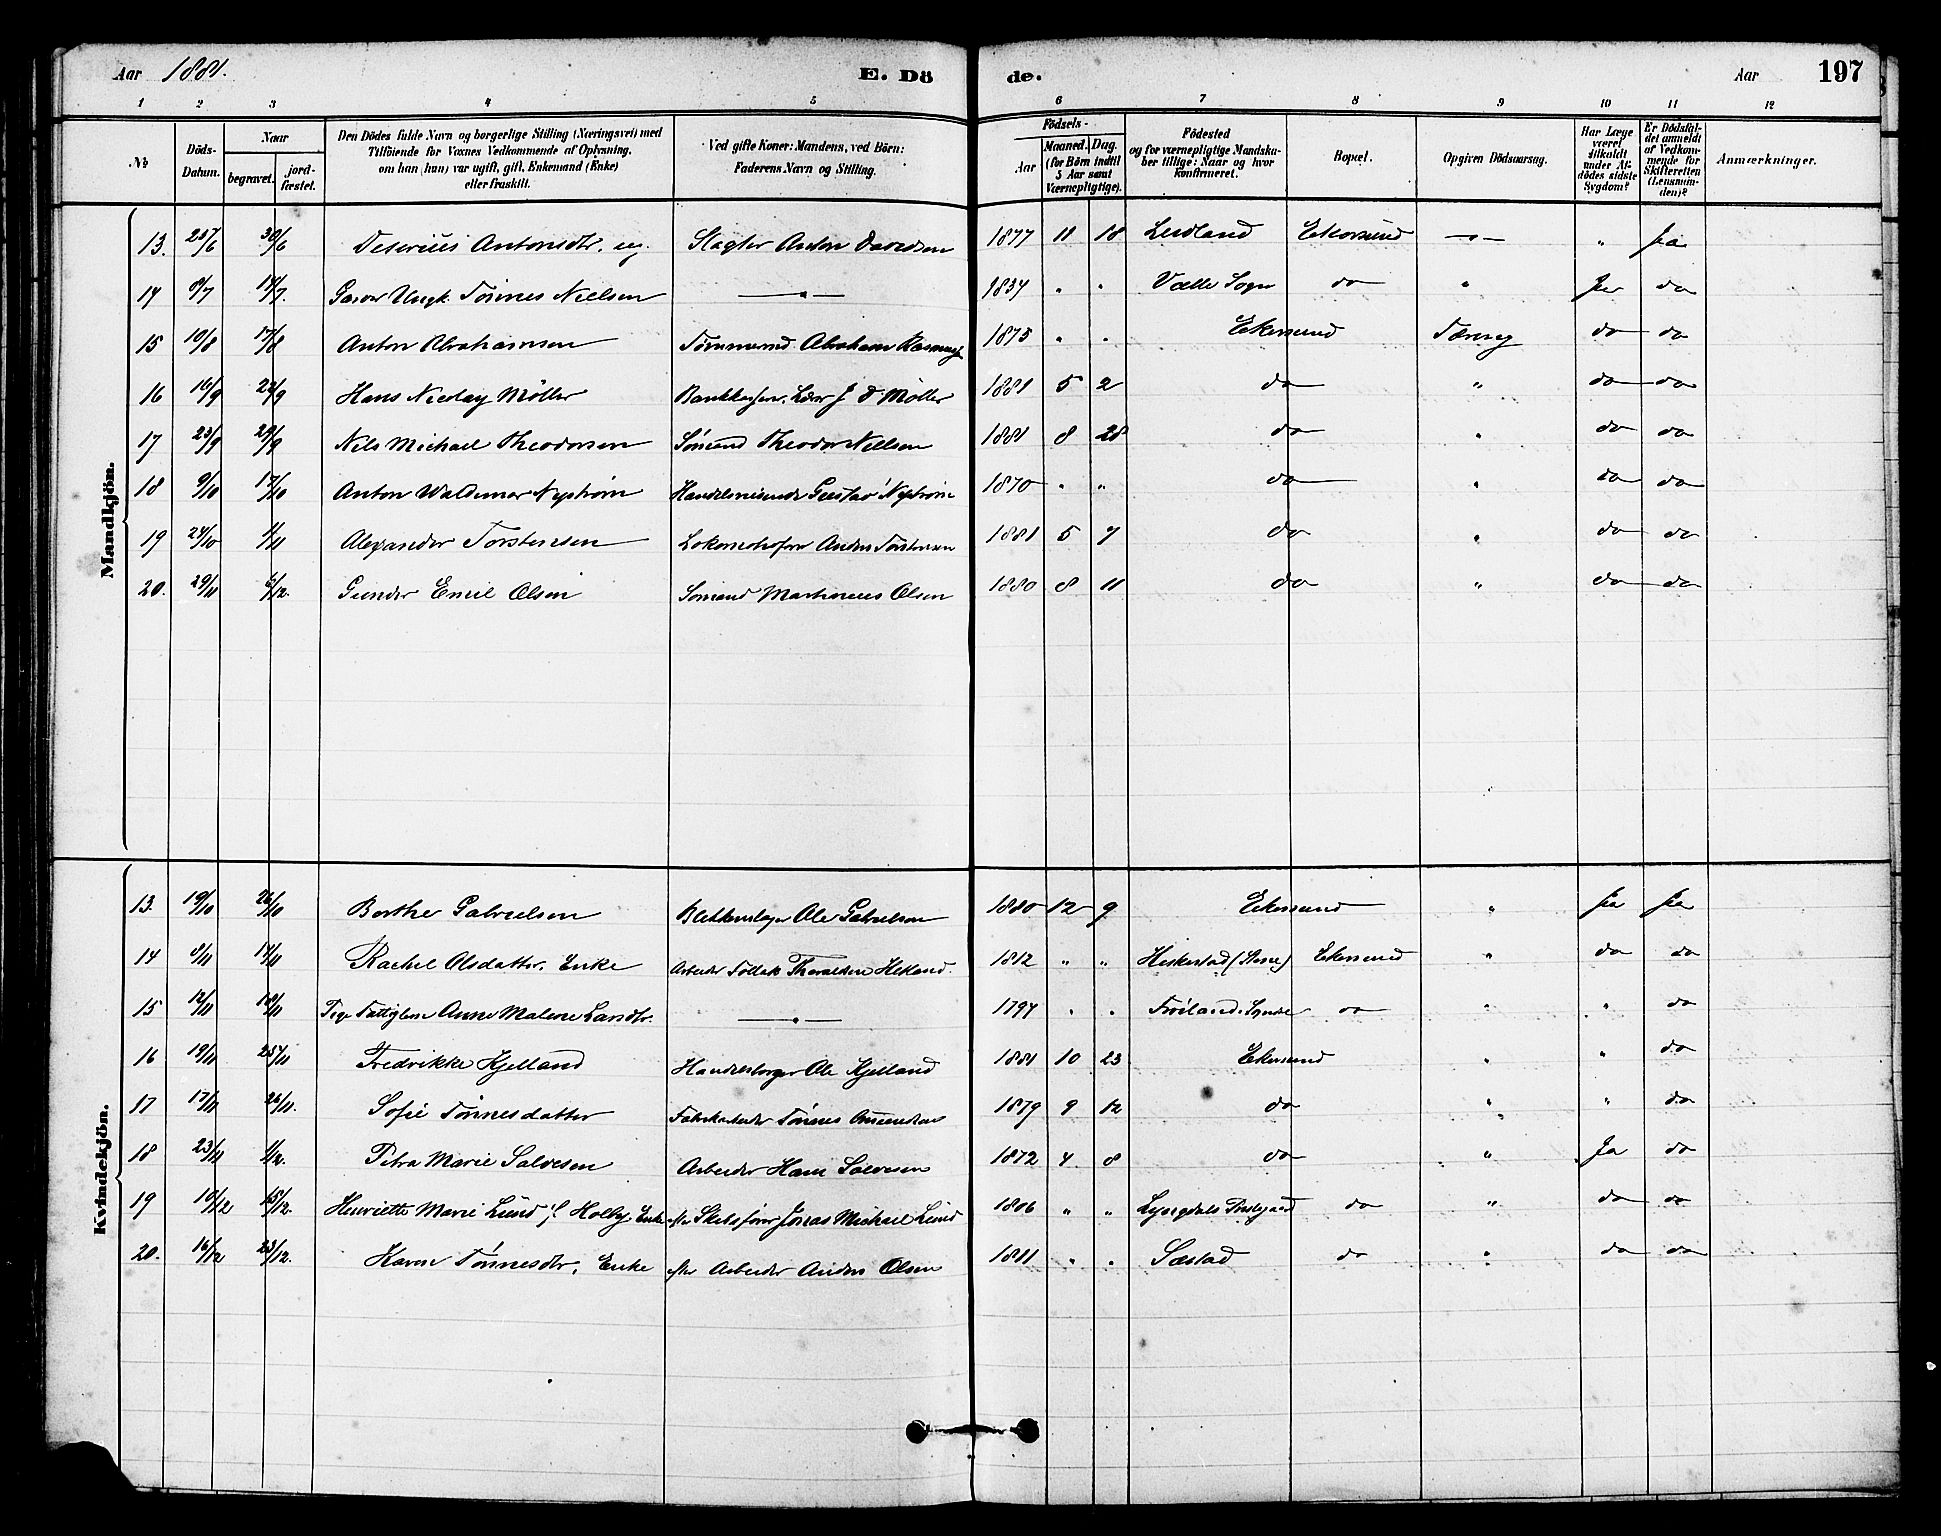 Aar 1881. E. Dö de. Aar 197
1 2 3 4 5 6 7 8 9 10 11 12
No
Döds-Datum.
Naar
begravet.
jord-fæstet.
Den Dödes fulde Navn og borgerlige Stilling (Næringsvei) med
Tilföiende for Voxnes Vedkommende af Oplysning,
om han (hun) var ugift, gift, Enkemand (Enke)
eller fraskilt.
Ved gifte Koner: Mandens, ved Börn:
Faderens Navn og Stilling.
Födsels-
Aar
Maaned. Dag.
(for Börn indtil
5 Aar samt
Værnepligtige).
Födested
og for værnepligtige Mandska-
ber tillige: Naar og hvor
konfirmeret.
Bopæl.
Opgiven Dödsaarsag.
Har Læge
været
tilkaldt
under Af-
dödes sidste
Sygdom?
Er Dödsfal-
det anmeldt
af Vedkom-
mende for
Skifteretten
(Lensman-
den)?
Anmærkninger.
Mandkjön.
13. 25/6 30/6 Antonsdtr. ug. Slagter Anton Davidsen 1877 11 18 Ekersund —„— „ Ja
14 17/7. Tönnes Nielsen —„— 1834 „ „ Sogn do „ Ja do
15 10/8 17/8 Anton Abrahamsen Tömmermd. Abraham 1875 „ „ Ekersund Tæring do do
16 16/9 22/9 Hans Nicolay Möller J D Möller 1881 5 2 do „ do do
17 23/9 29/9 Nils Michael Theodorsen Sömand Theodor Nielsen 1881 8 28 do „ do do
18 9/10 17/10 Anton Waldemar Nyström Handelsreisende Gustav Nyström 1870 „ „ do „ do do
19 24/10 1/11 Alexander Torstensen Anders Torstensen 1881 5 7 do „ do do
20. 29/11 6/12. Gunder Emil Olsen Sömand Martinius Olsen 1880 8 11 do „ do do
Kvindekjön.
13. 19/10 26/10 Berthe Gabrielsen Blikkenslager Ole Gabrielsen 1880 12 9 Ekersund „ Ja Ja
14 8/11 14/11 Rachel Olsdatter, Enke Arbeider Tollak Thorvaldsen Hetland. 1812 „ „ Heskestad Ekersund „ do do
15 12/11 18/11 Pige Fattiglem Anne Malene Larsdtr. —„— 1794 „ „ Fröiland do „ „ do
16 19/11 25/11 Fredrikke Kjelland Handelsborger Ole Kjelland 1881 10 23 Ekersund „ „ do
17 17/11 26/11. Sofie Tönnesdatter Fabrikarbeider Tönnes 1879 9 12 do „ „ do
18 23/11 1/12. Petra Marie Salvesen Arbeider Hans Salvesen 1872 4 8 do „ Ja do
19 10/12 15/12. Henriette Marie Lund f. Holby Enke efter Skibsförer Jonas Michael Lund 1806 „ „ Lyngdals Prstgjæld do „ do do
20. 16/12 23/12. Karen Tönnesdtr, Enke efter Arbeider Anders Olsen 1811 „ „ Sæstad do „ do do